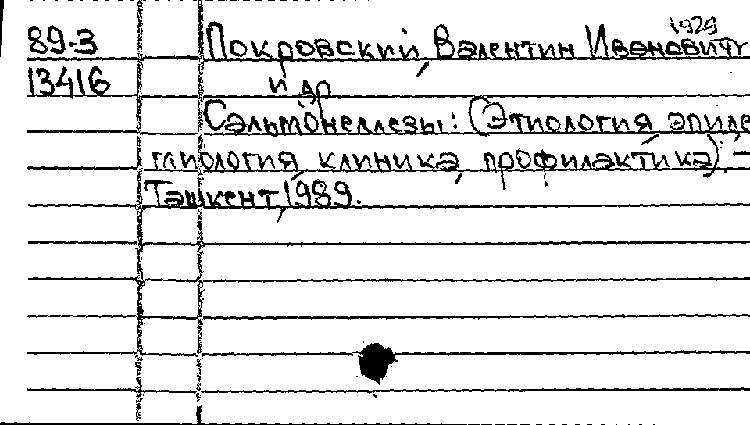 1929
89-3 Покровский, Валентин Иванович
13416 и др
Сальмонеллезы: (Этиология, эпиде
миология, клиника, профилактика). –
Ташкент, 1989.